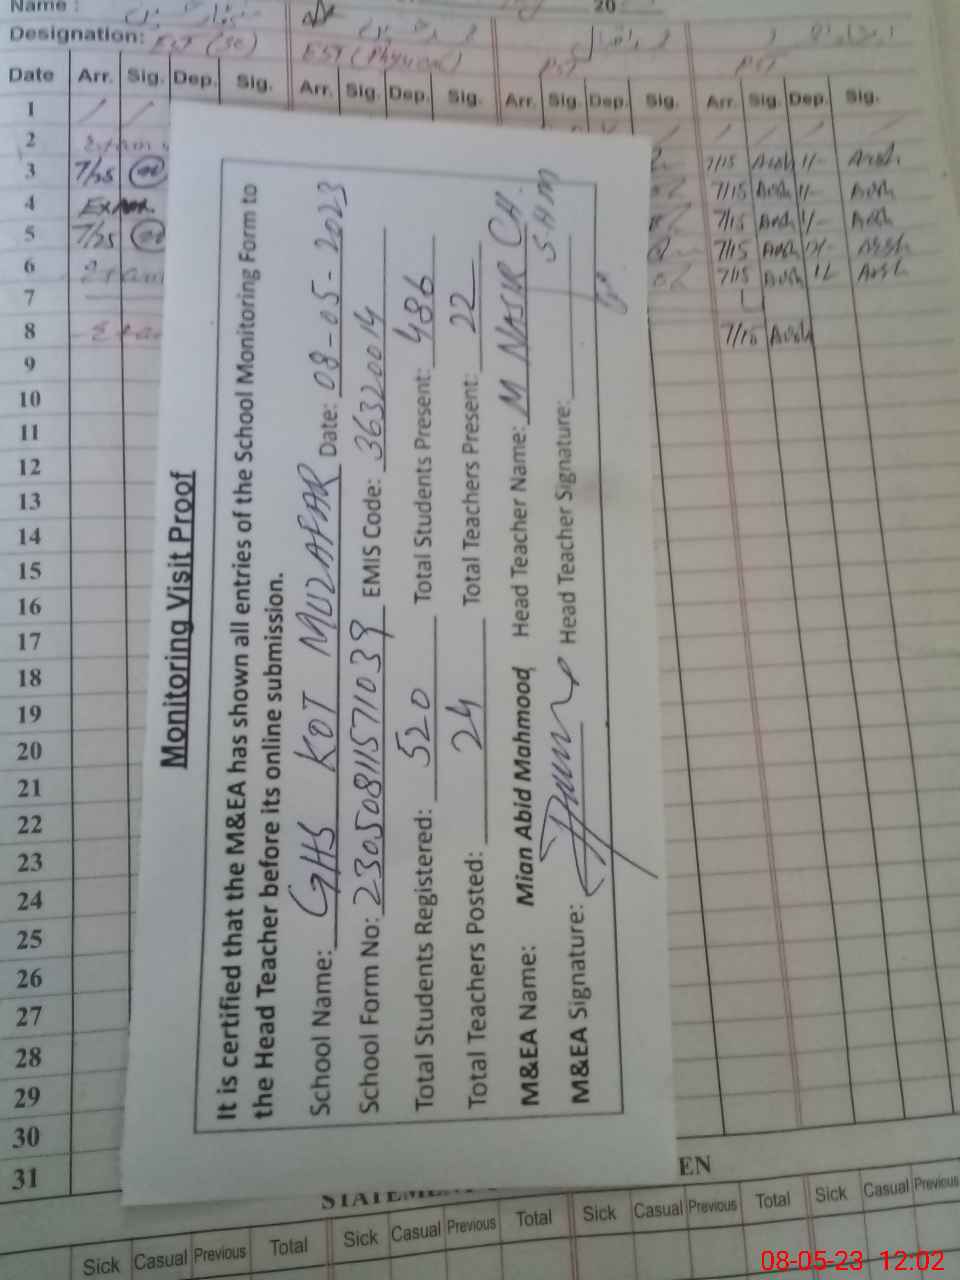 Name :
20
Designation: EST (SC) EST (Physical) PST PST
Date Arr. Sig. Dep. Sig. Arr. Sig. Dep. Sig. Arr. Sig. Dep. Sig. Arr. Sig. Dep. Sig.
1
2
3 7/25 7/15
4 7/15
5 7/25 7/15
6 7/15
7 7/15
8 7/15
9
10
11
12
13
14
15
16
17
18
19
20
21
22
23
24
25
26
27
28
29
30
31
Monitoring Visit Proof
It is certified that the M&EA has shown all entries of the School Monitoring Form to
the Head Teacher before its online submission.
School Name: GHS KOT MUZAFAR Date: 08-05-2023
School Form No: 23050811571039 EMIS Code: 36320014
Total Students Registered: 520 Total Students Present: 486
Total Teachers Posted: 24 Total Teachers Present: 22
M&EA Name: Mian Abid Mahmood Head Teacher Name: M NASIR CH.
M&EA Signature: Head Teacher Signature:
EN
Sick Casual Previous Total Sick Casual Previous Total Sick Casual Previous Total Sick Casual Previous
08-05-23 12:02